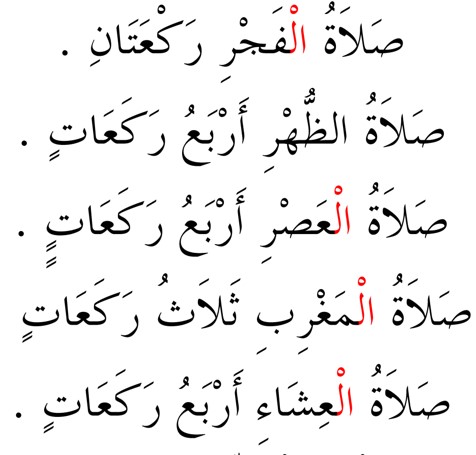 صَلاَةُ الْفَجْرِ رَكْعَتَانِ .
صَلاَةُ الظُّهْرِ أَرْبَعُ رَكَعَاتٍ .
صَلاَةُ الْعَصْرِ أَرْبَعُ رَكَعَاتٍ .
صَلاَةُ الْمَغْرِبِ ثَلاَثُ رَكَعَاتٍ
صَلاَةُ الْعِشَاءِ أَرْبَعُ رَكَعَاتٍ .